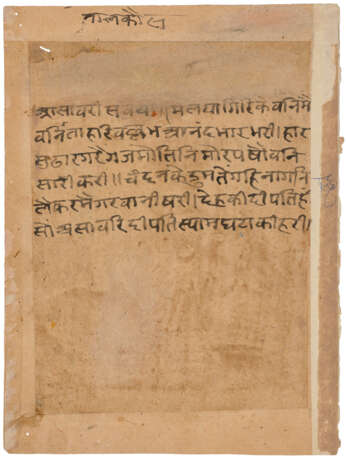 मालकौस
आसावरी सवैया॥ मलयागिरि के वनि मै
वनिता हरि वल्लभ आनंद भार भरी। हार
सुढार गरै गजमोतिनि मोरपषौवनि
सारी करी॥ चंदन के द्रुम तै गहि नागनि
लै कर मै गरवानी धरी। देह की दीपति
सो असावरि दीपति स्याम घटा की हरी।